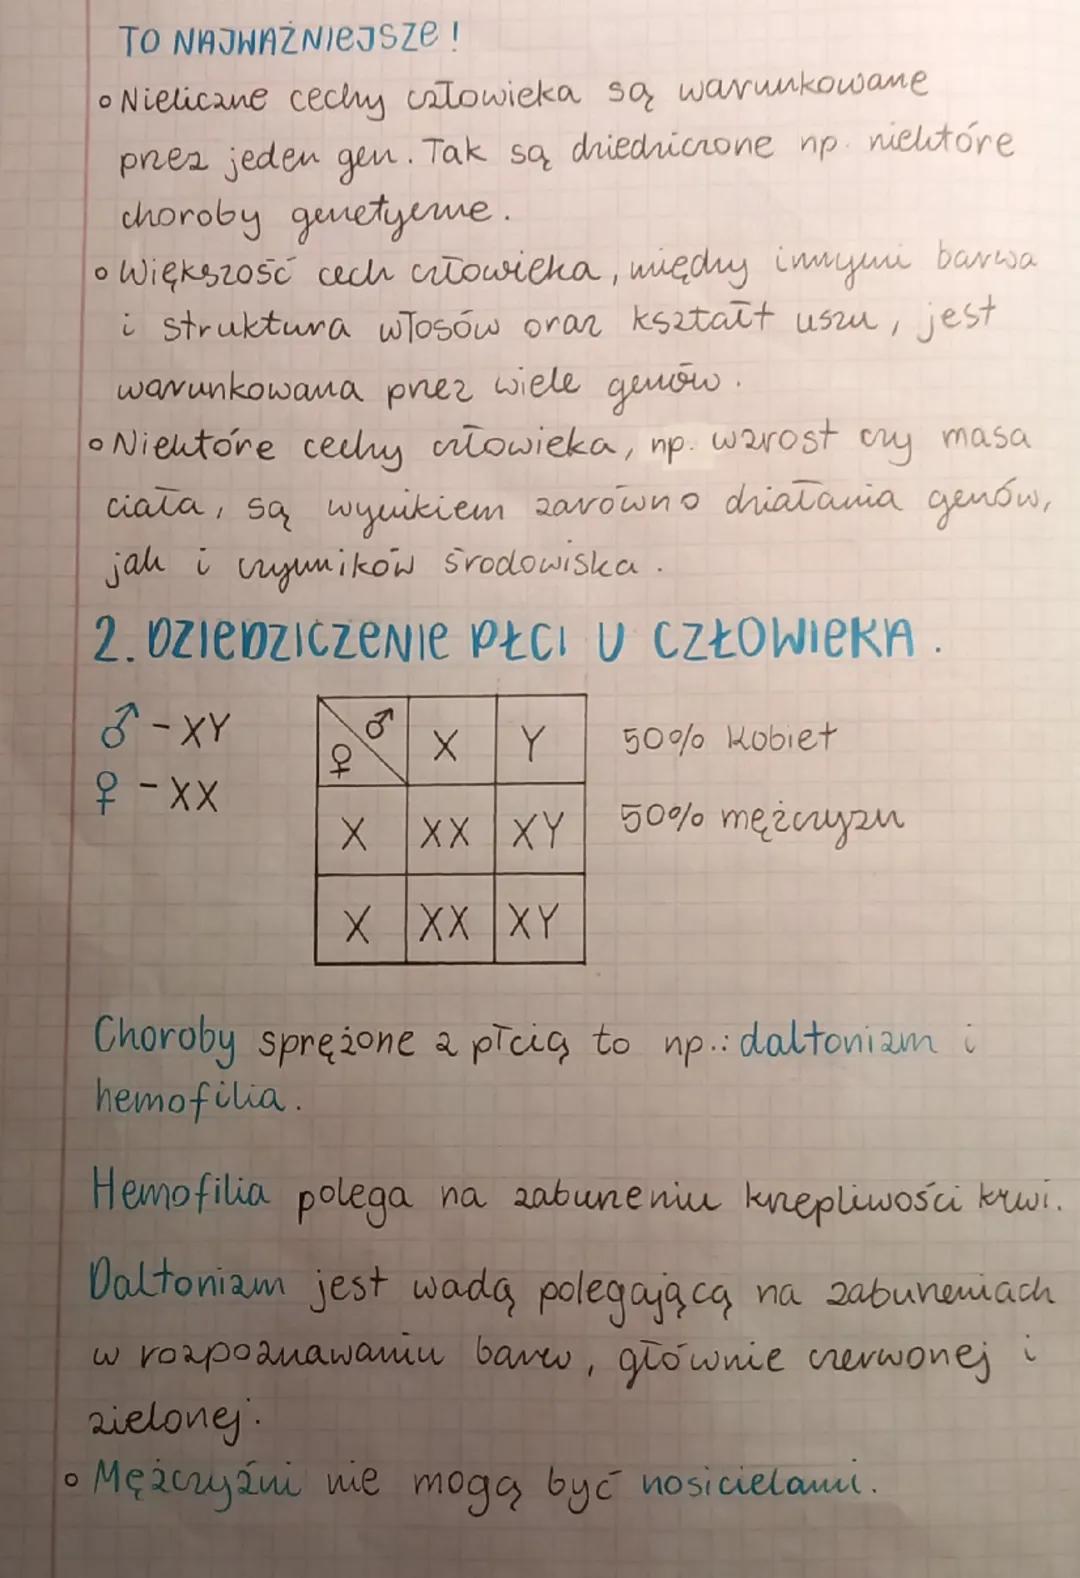 TO NAJWAŻNIEJSZE!
• Nieliczne cechy człowieka są warunkowane
przez jeden gen. Tak są dziedziczone np. niektóre
choroby genetyczne.
• Większość cech człowieka, między innymi barwa
i struktura włosów oraz kształt uszu, jest
warunkowana przez wiele genów.
• Niektóre cechy człowieka, np. wzrost czy masa
ciała, są wynikiem zarówno działania genów,
jak i czynników środowiska.
2. DZIEDZICZENIE PŁCI U CZŁOWIEKA.
♂ - XY
♀ - XX
♀ ♂ X Y
X XX XY
X XX XY
50% kobiet
50% mężczyzn
Choroby sprężone z płcią to np.: daltonizm i
hemofilia.
Hemofilia polega na zaburzeniu krzepliwości krwi.
Daltonizm jest wadą polegającą na zaburzeniach
w rozpoznawaniu barw, głównie czerwonej i
zielonej.
• Mężczyźni nie mogą być nosicielami.